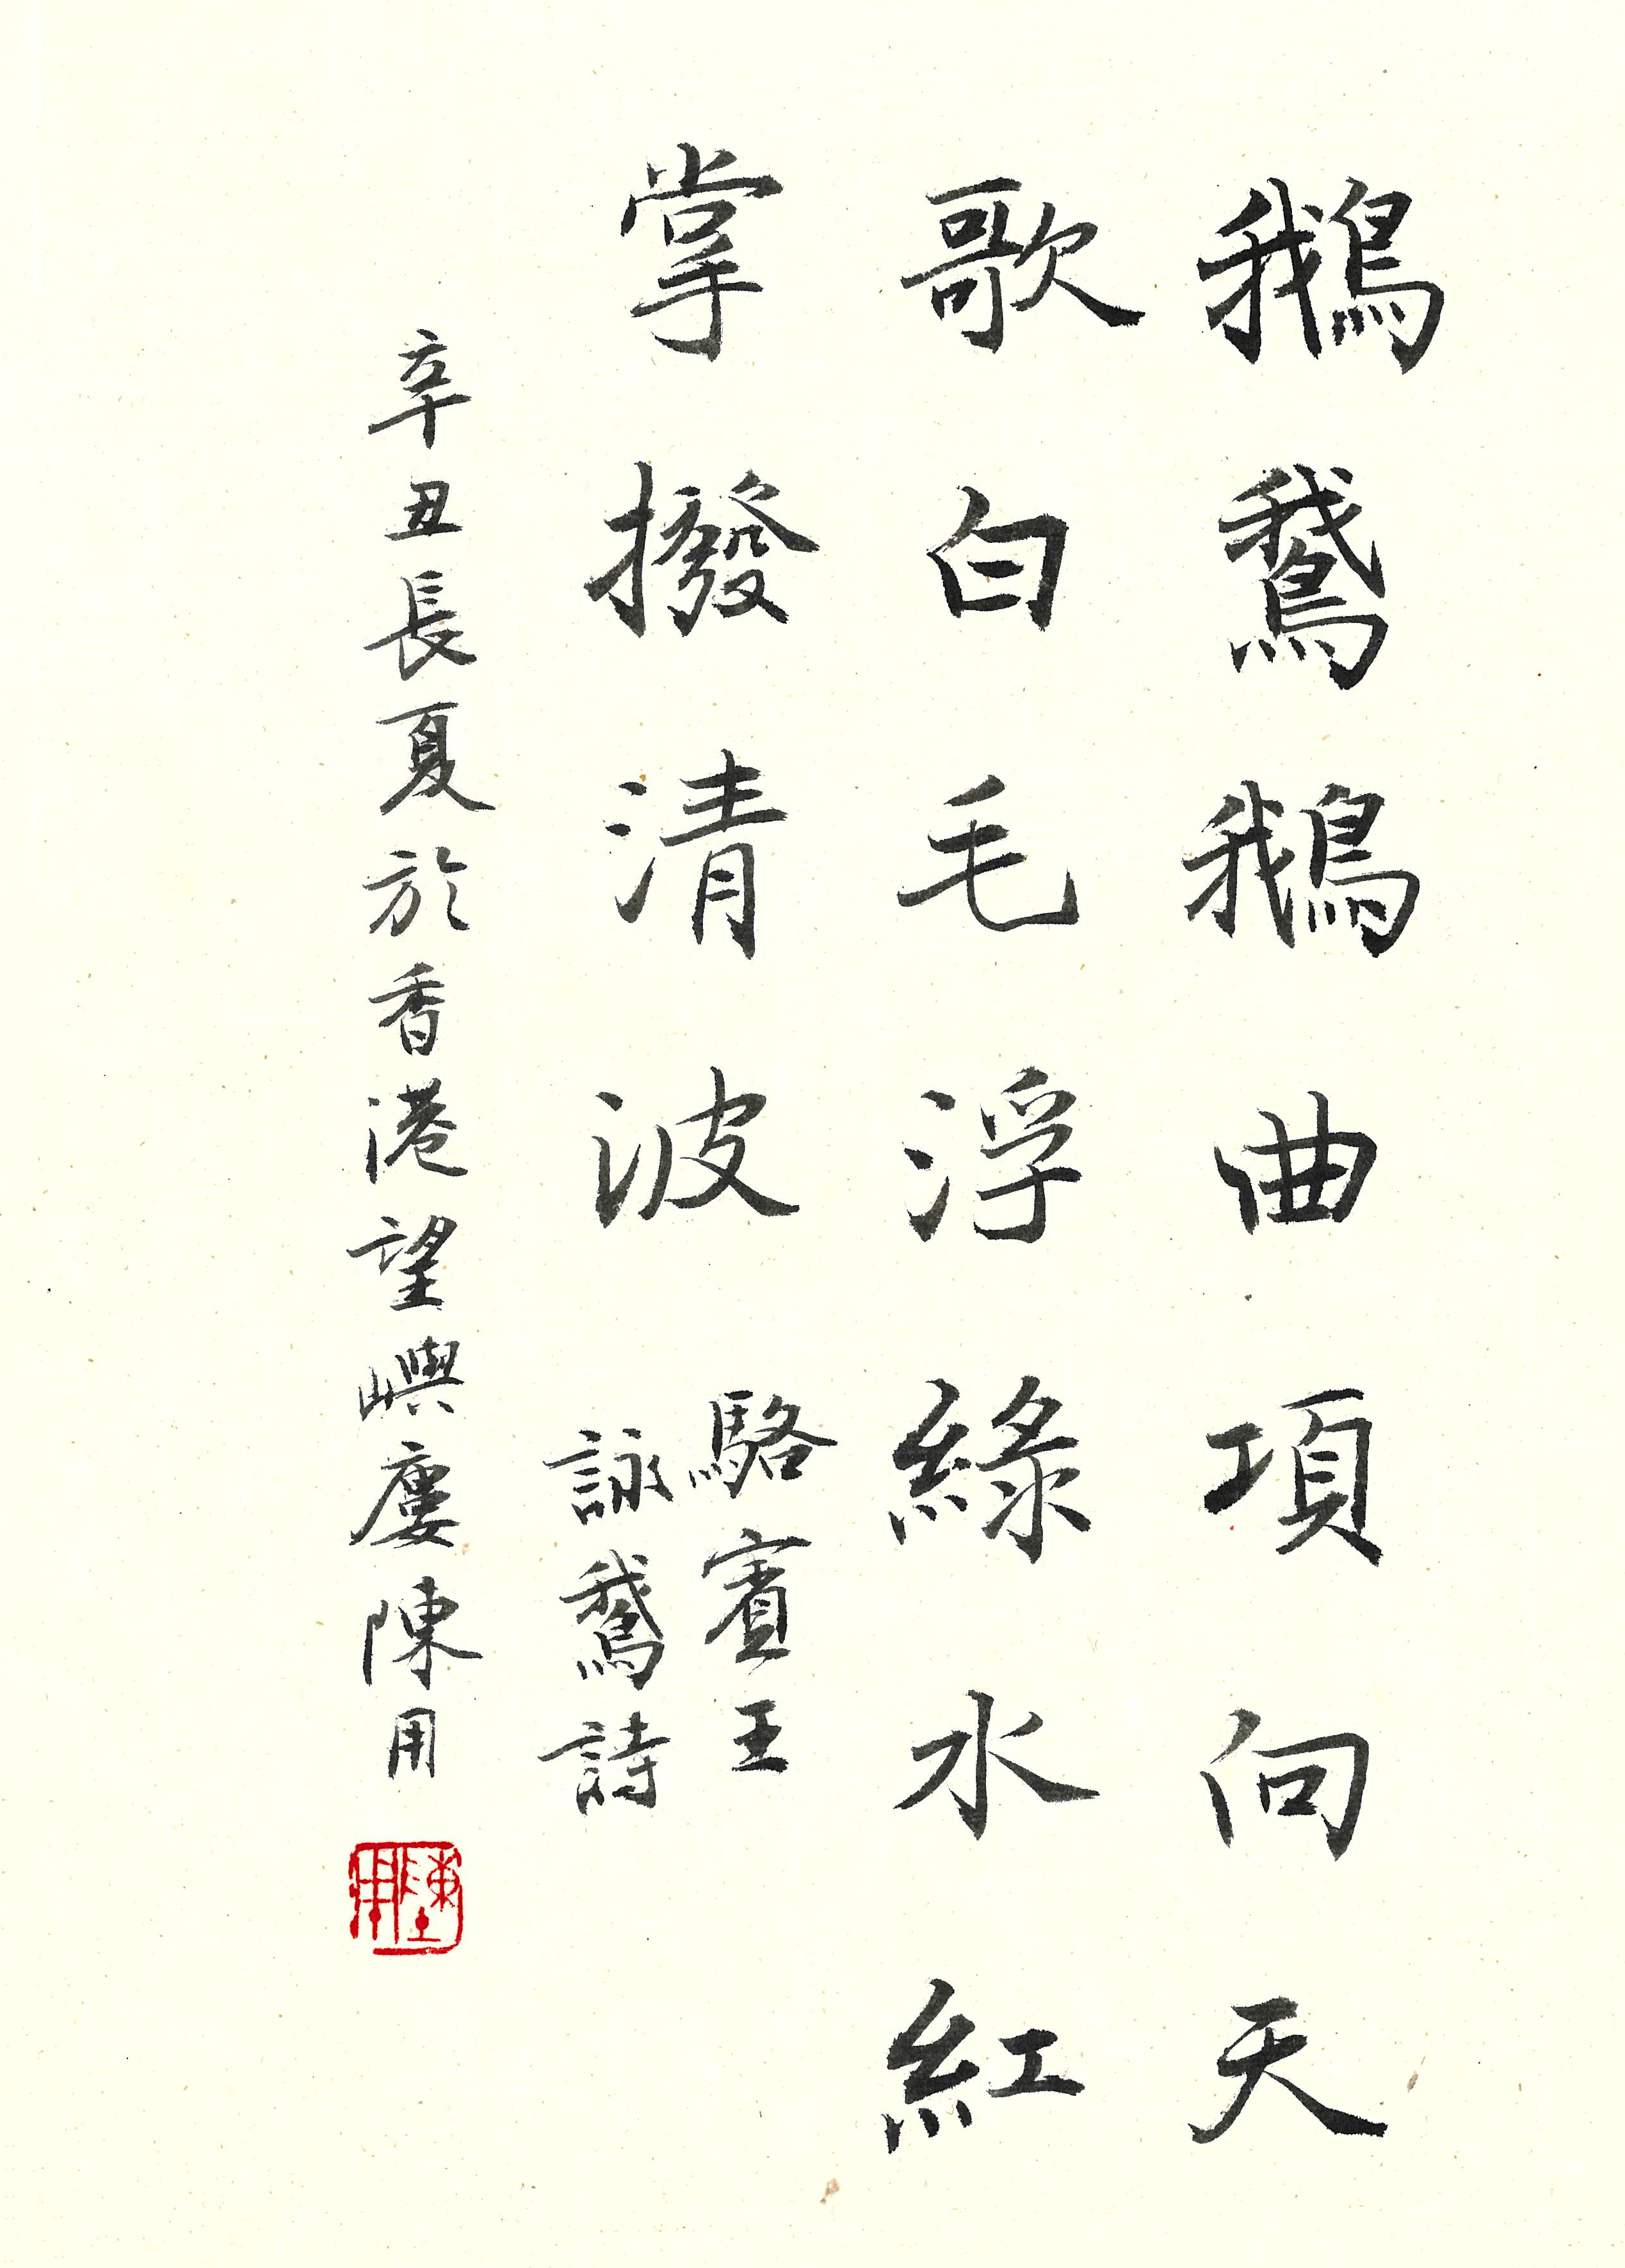 鵝鵞鵝曲項向天
歌白毛浮綠水紅
掌撥清波
駱賓王
詠鵞詩
辛丑長夏於香港望嶼廔陳用
陳用